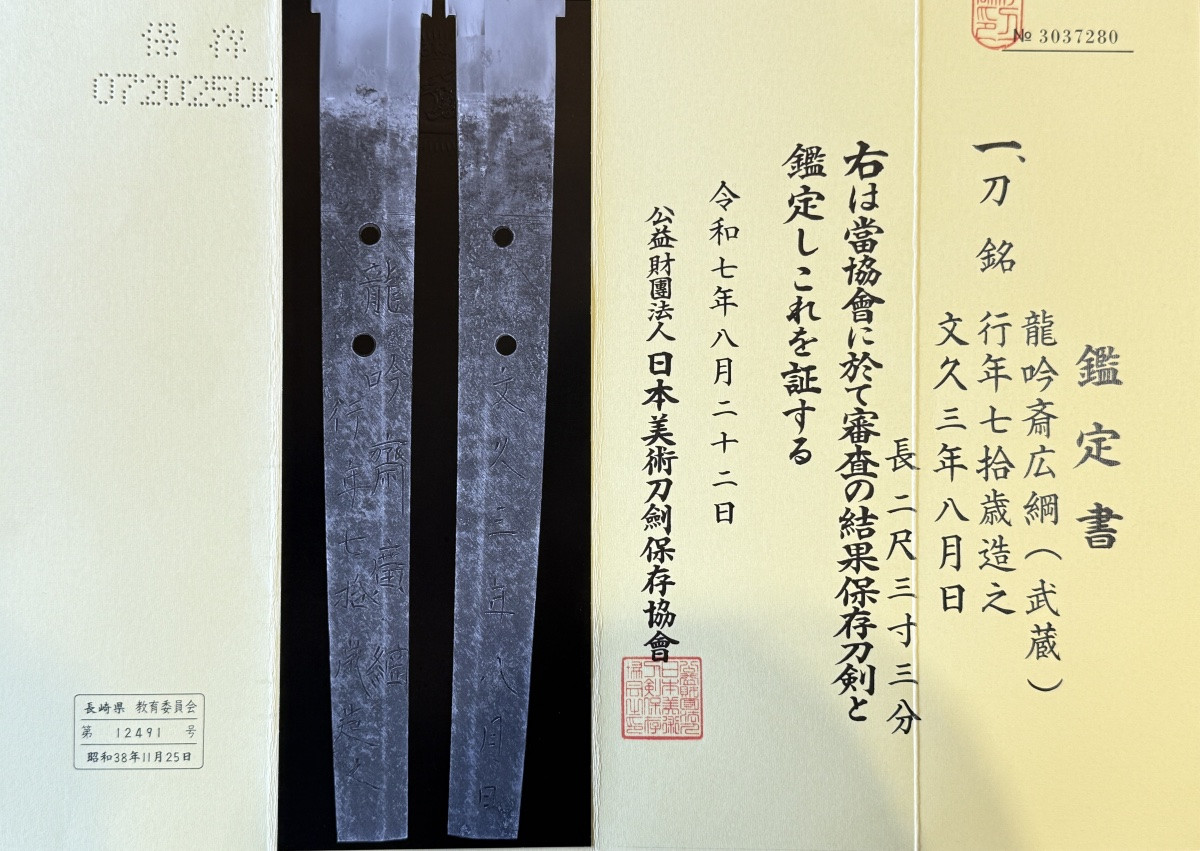 № 3037280
鑑定書
一、刀 銘
龍吟斎広綱(武蔵)
行年七拾歳造之
文久三年八月日
長二尺三寸三分
右は當協會に於て審査の結果保存刀剣と
鑑定しこれを証する
令和七年八月二十二日
公益財團法人日本美術刀劍保存協會
文久三年八月日
龍吟齋廣綱
行年七拾歳造之
保存
07202506
長崎県 教育委員会
第 12491 号
昭和38年11月25日